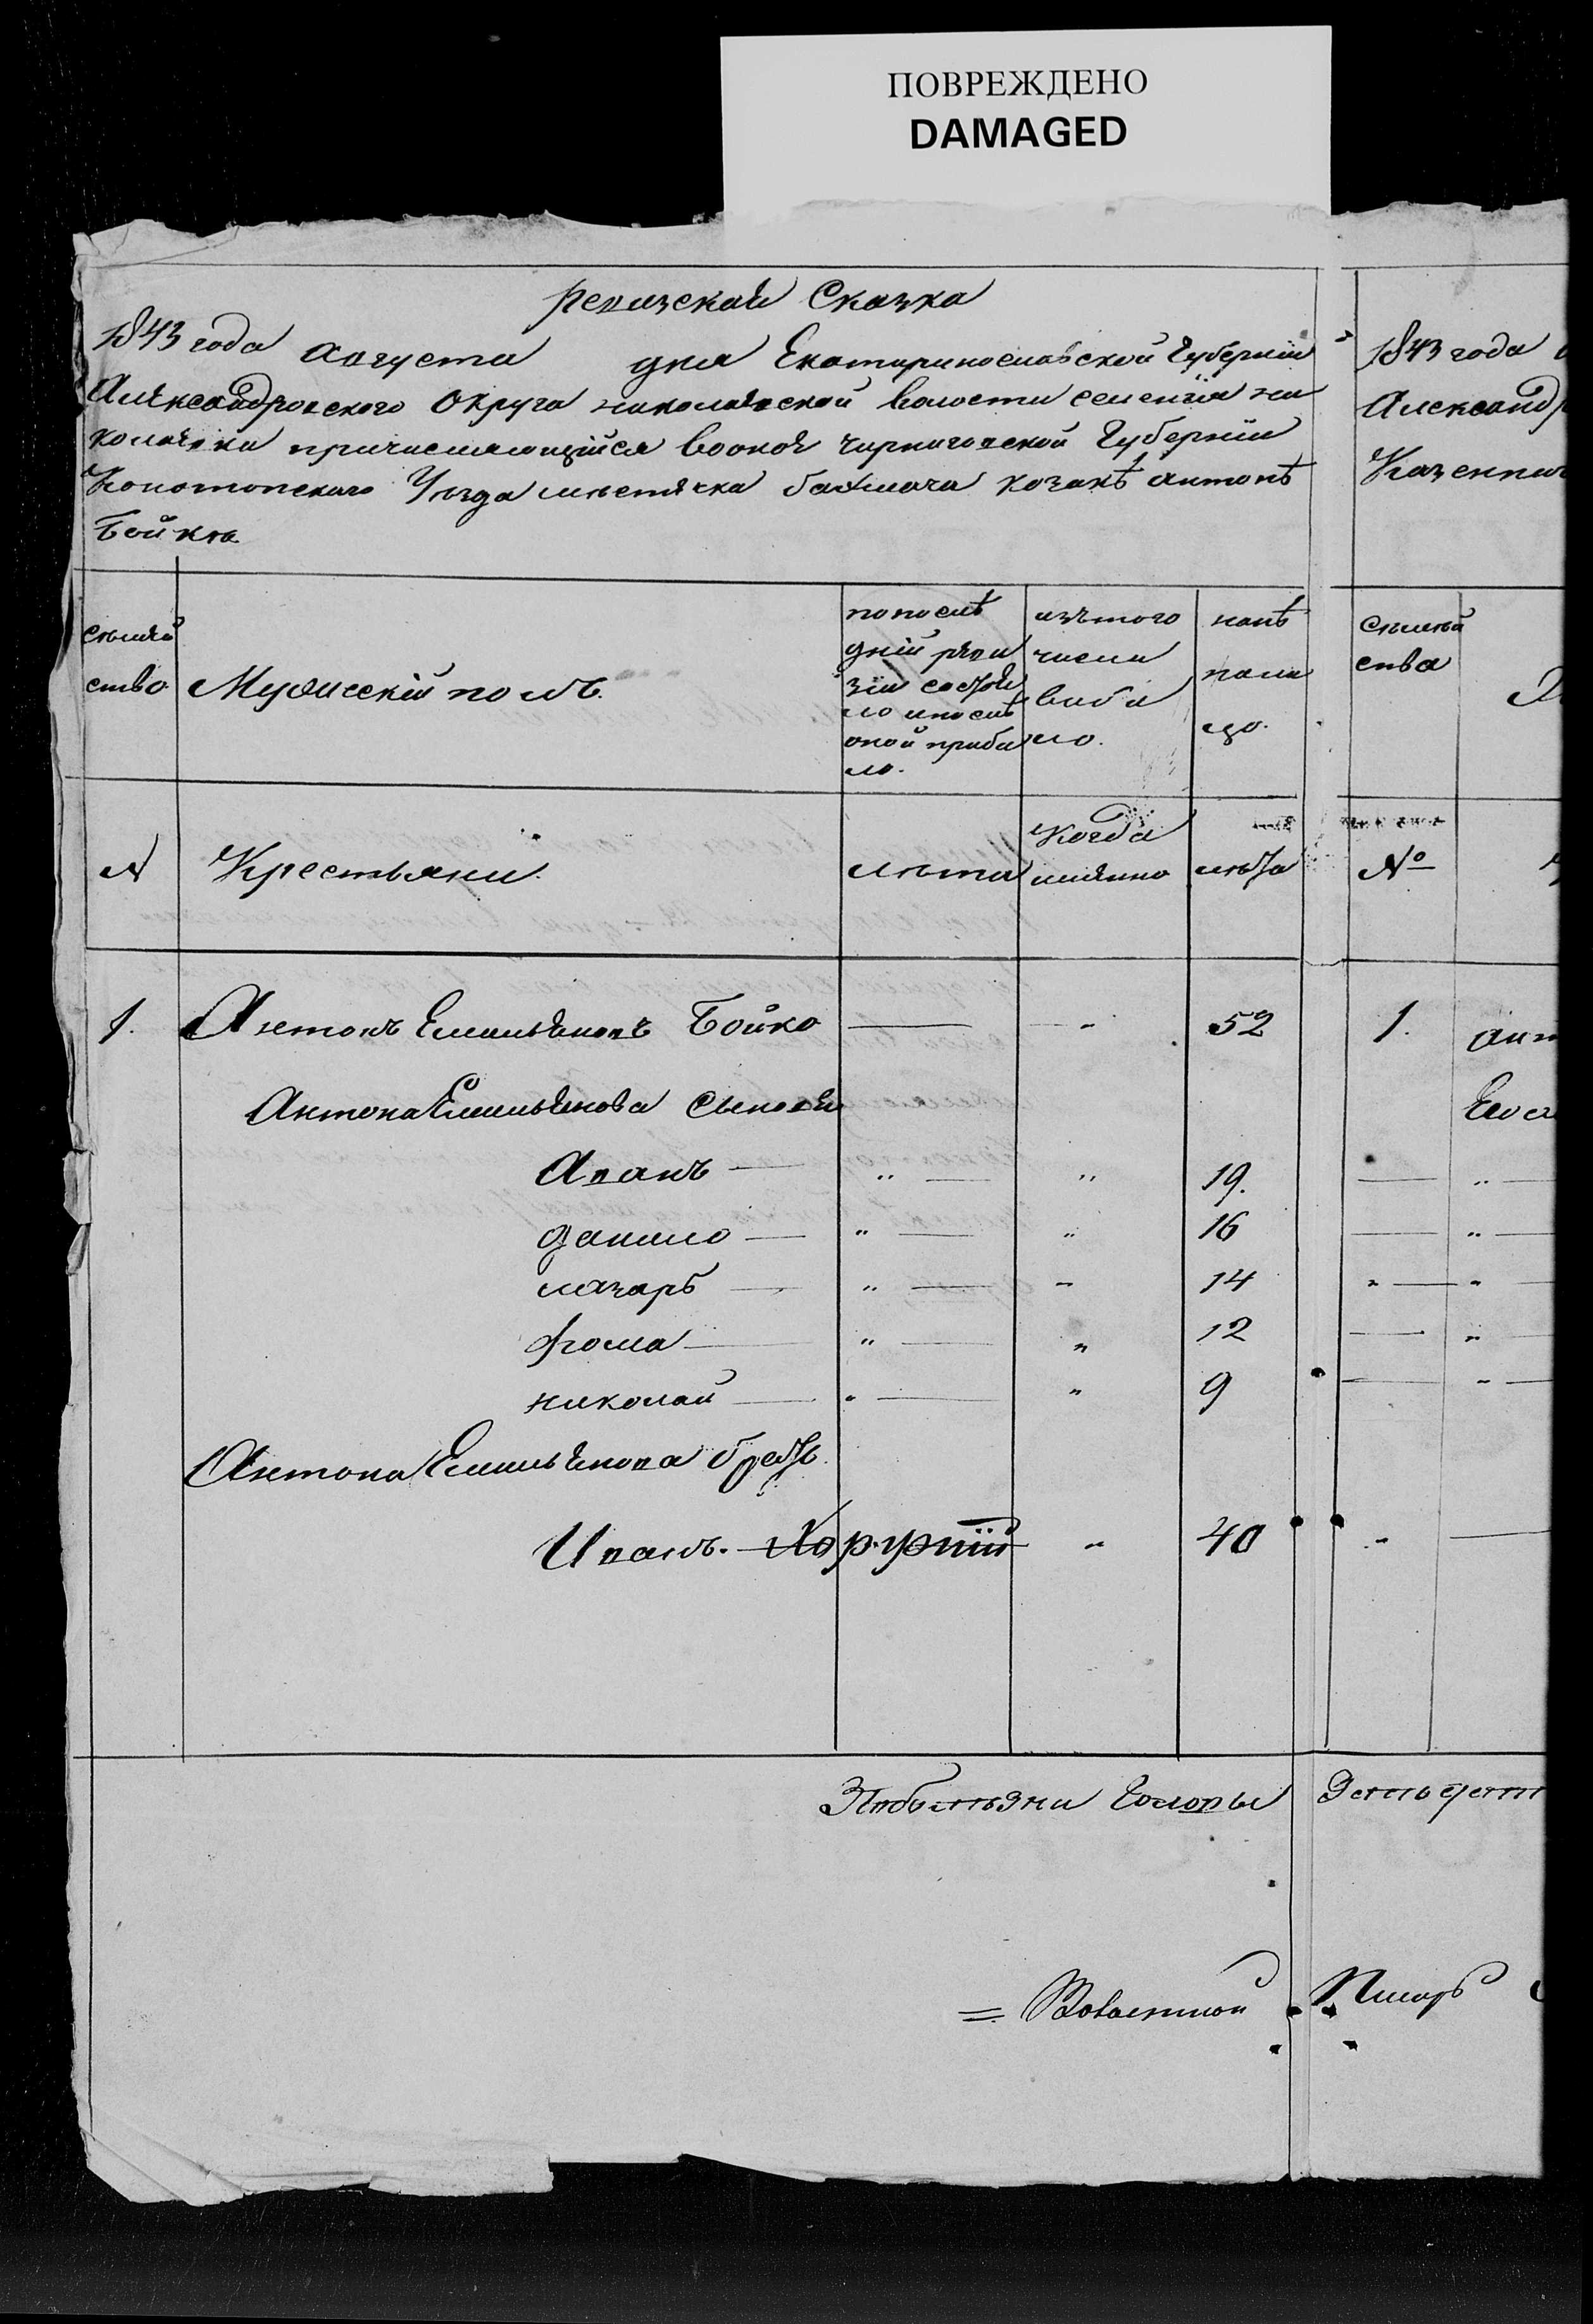 ПОВРЕЖДЕНО
DAMAGED
Ревизская Сказка
1843 года Августа дня Екатеринославской Губернии
Александровского Округа николаевской волости селенія ни
колаевки причисляющійся воокол черниговской Губерніи
Конотопскаго Уезда местечка бахмача козакъ антонъ
Бойко
семей
ство
Мужескій полъ.
попослѣ
дній реви
зіи состоя
ло ипослѣ
оной прибы
ло.
изътого
числа
выбы
ло.
нанѣ
лицо.
N
Крестьяни.
лета
Когда
имянно
лета
1. Антонъ Емельяновъ Бойко — " 52
Антона Емельянова сыновья
Аванъ — " — " 19.
данило — " — " 16
лазарь — " — " 14
фома — " — " 12
николай — " — " 9
Антона Емельянова братъ
Иванъ. Хоружій " 40
Головы
= Волостной Писарь
1843 года
Александр
Казеннаг
семей
ства
№
1. Ант
Его